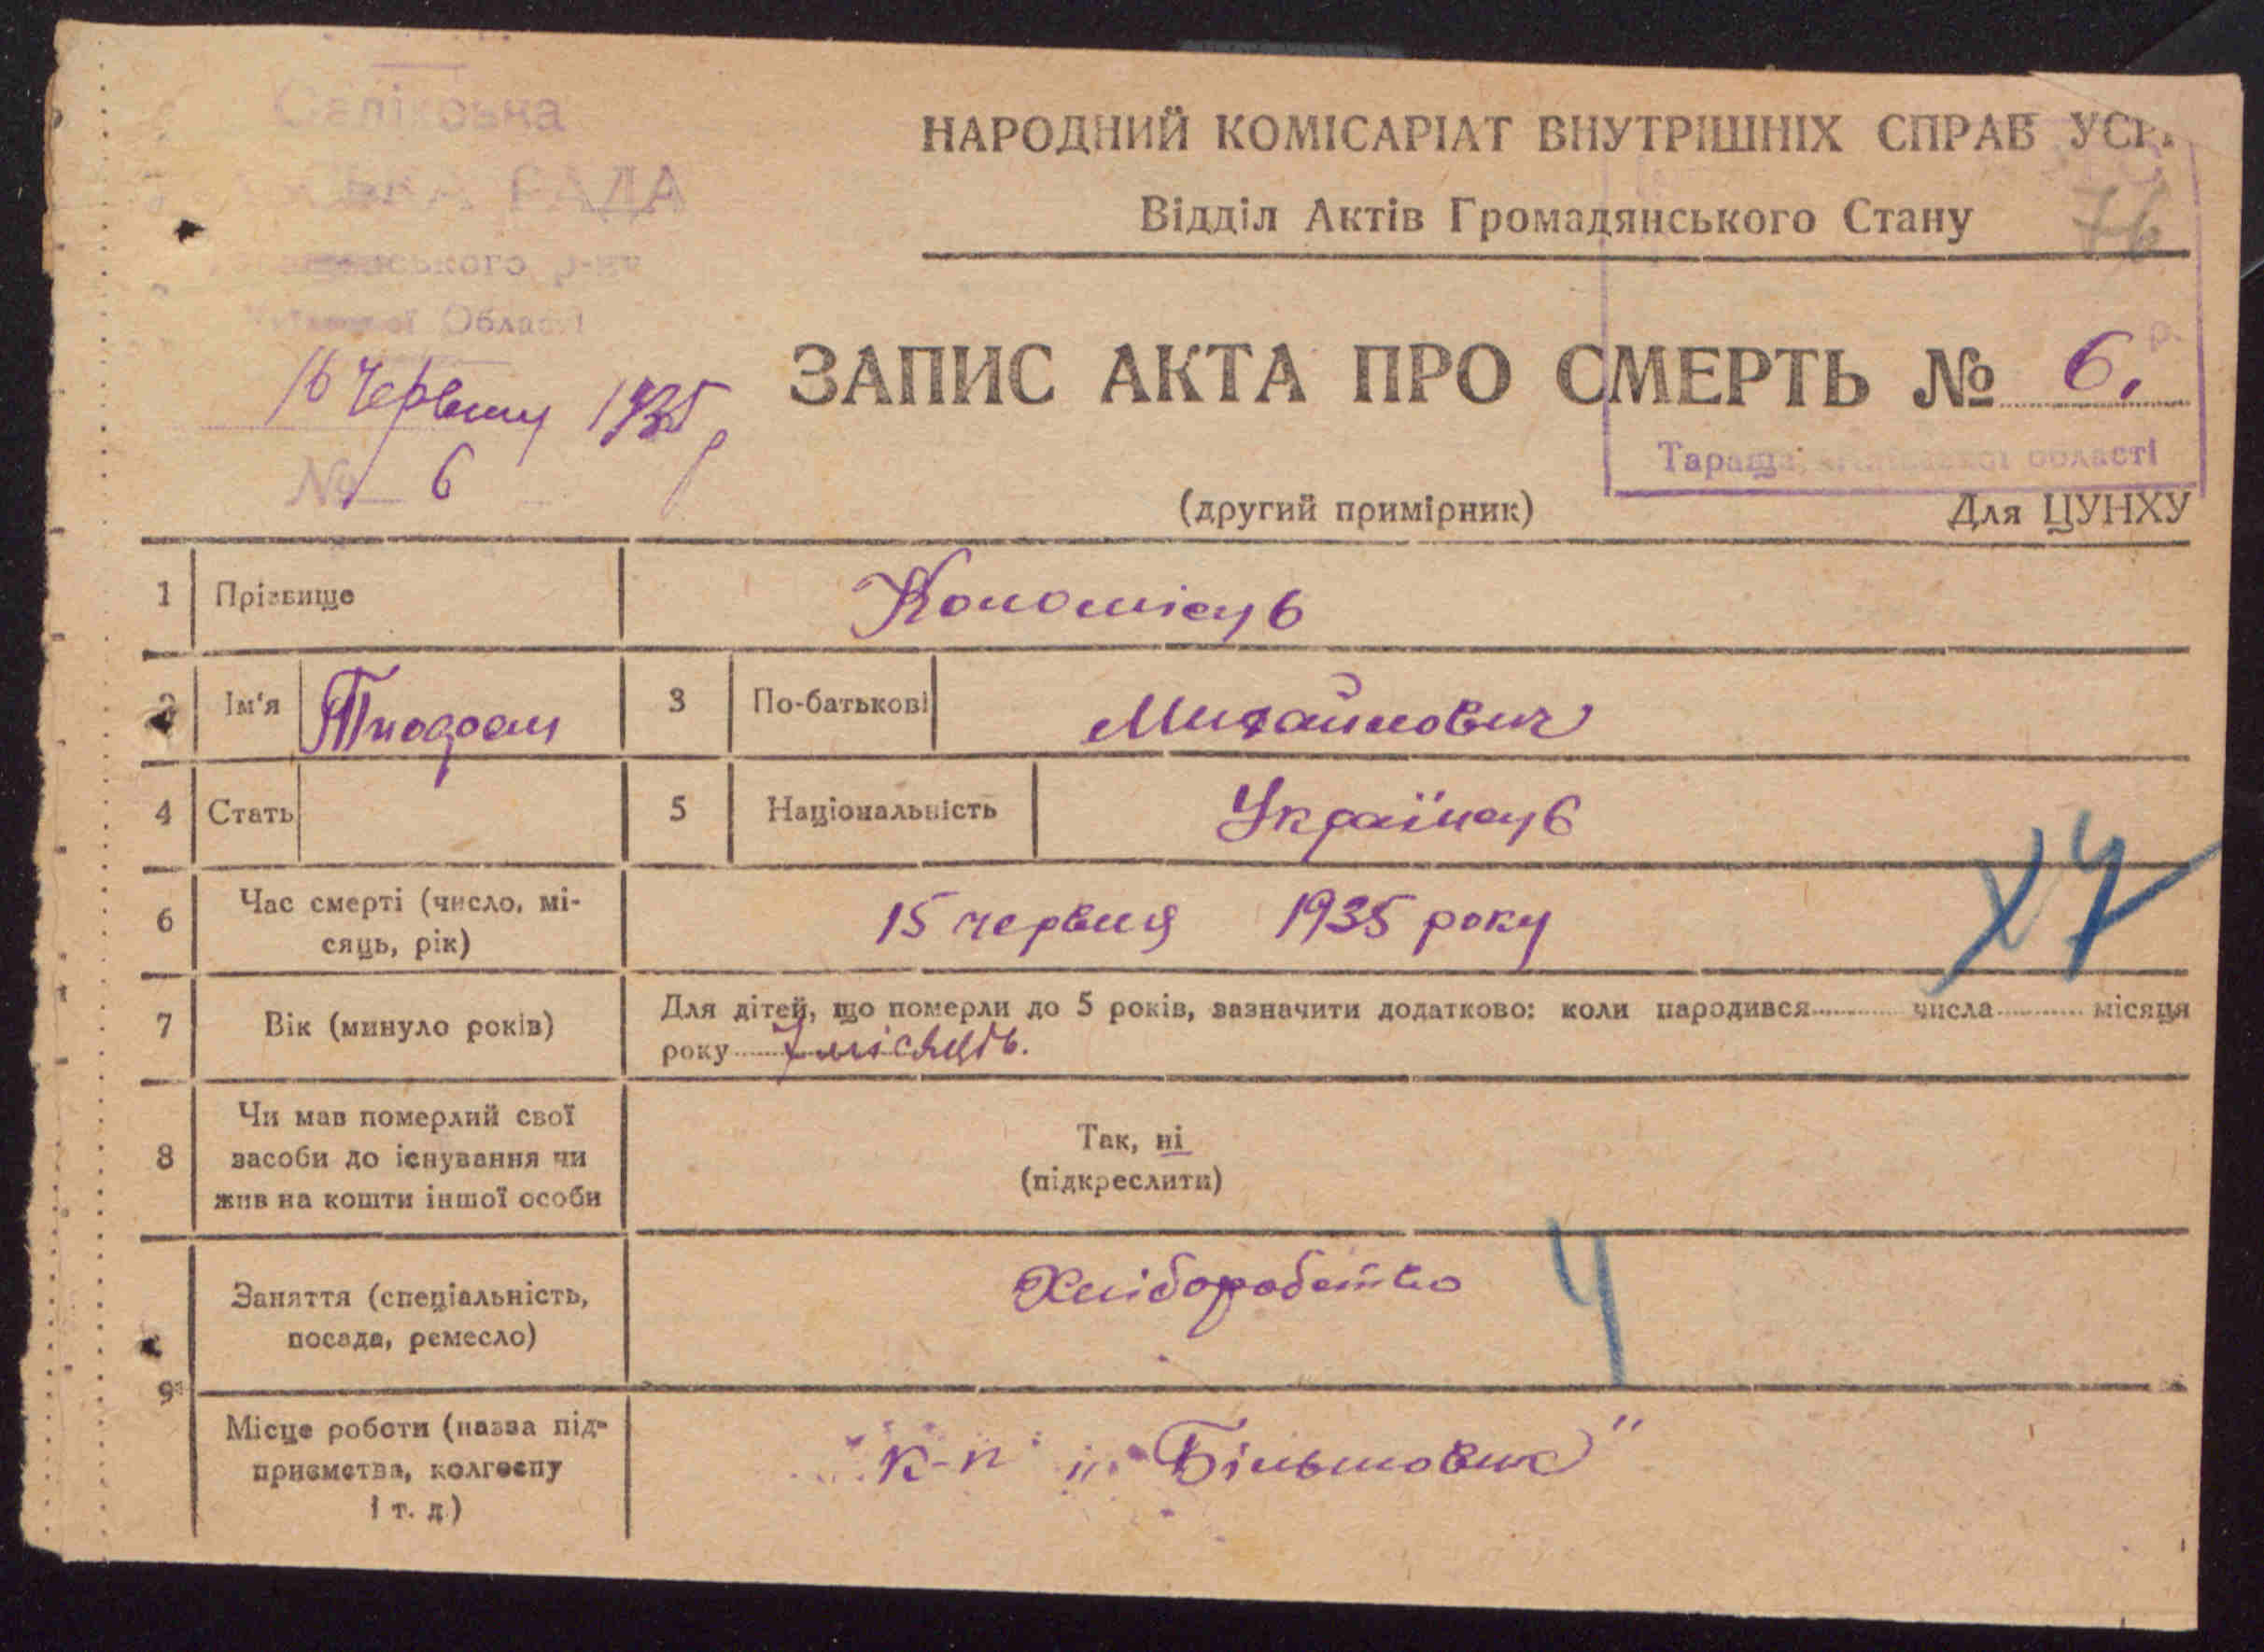 Саліковьна
РАДА
Області
16 червня 1935 р
№ 6
НАРОДНИЙ КОМІСАРІАТ ВНУТРІШНІХ СПРАВ УСР
Відділ Актів Громадянського Стану
76
ЗАПИС АКТА ПРО СМЕРТЬ № 6.
Тараща, Київської області
(другий примірник) Для ЦУНХУ
1 Прізвище
2 Ім'я 3 По-батькові Михайлович
4 Стать 5 Національність Українець
6 Час смерті (число, мі-
сяць, рік) 15 червня 1935 року
7 Вік (минуло років) Для дітей, що померли до 5 років, зазначити додатково: коли народився числа місяця
року 7 місяців.
8 Чи мав померлий свої
засоби до існування чи
жив на кошти іншої особи
Так, ні
(підкреслити)
9 Заняття (спеціальність,
посада, ремесло)
Хліборобство
Місце роботи (назва під-
приємства, колгоспу
і т. д.)
к-п „Більшовик"